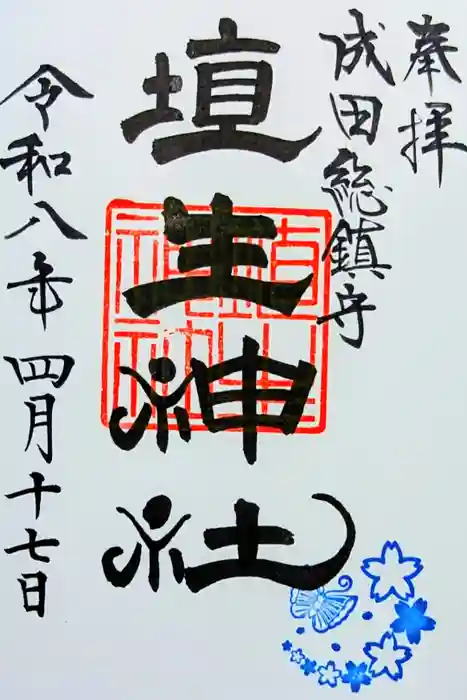 奉拝
成田総鎮守
埴生神社
令和八年四月十七日